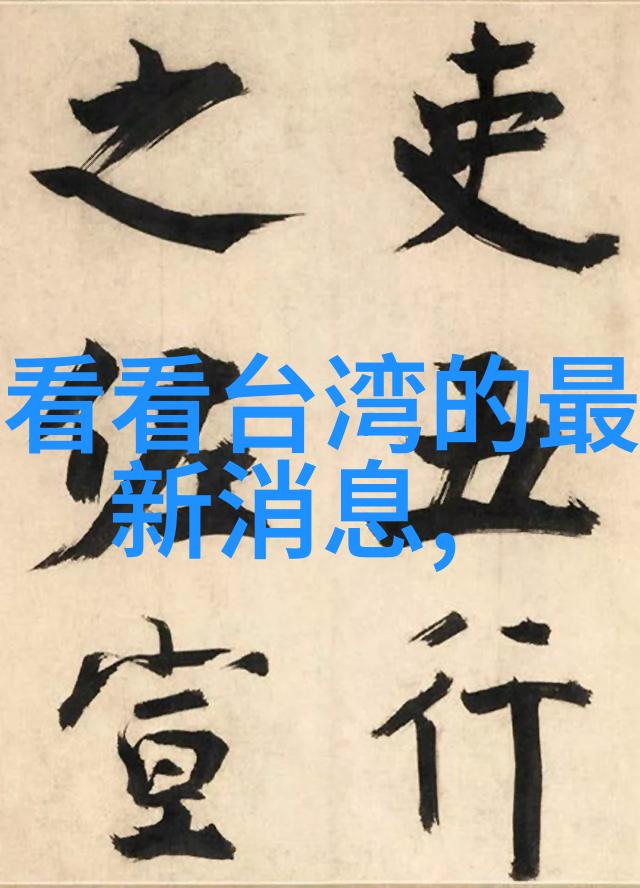 看看台湾的最
新消息,
吏丑行
之狂宣